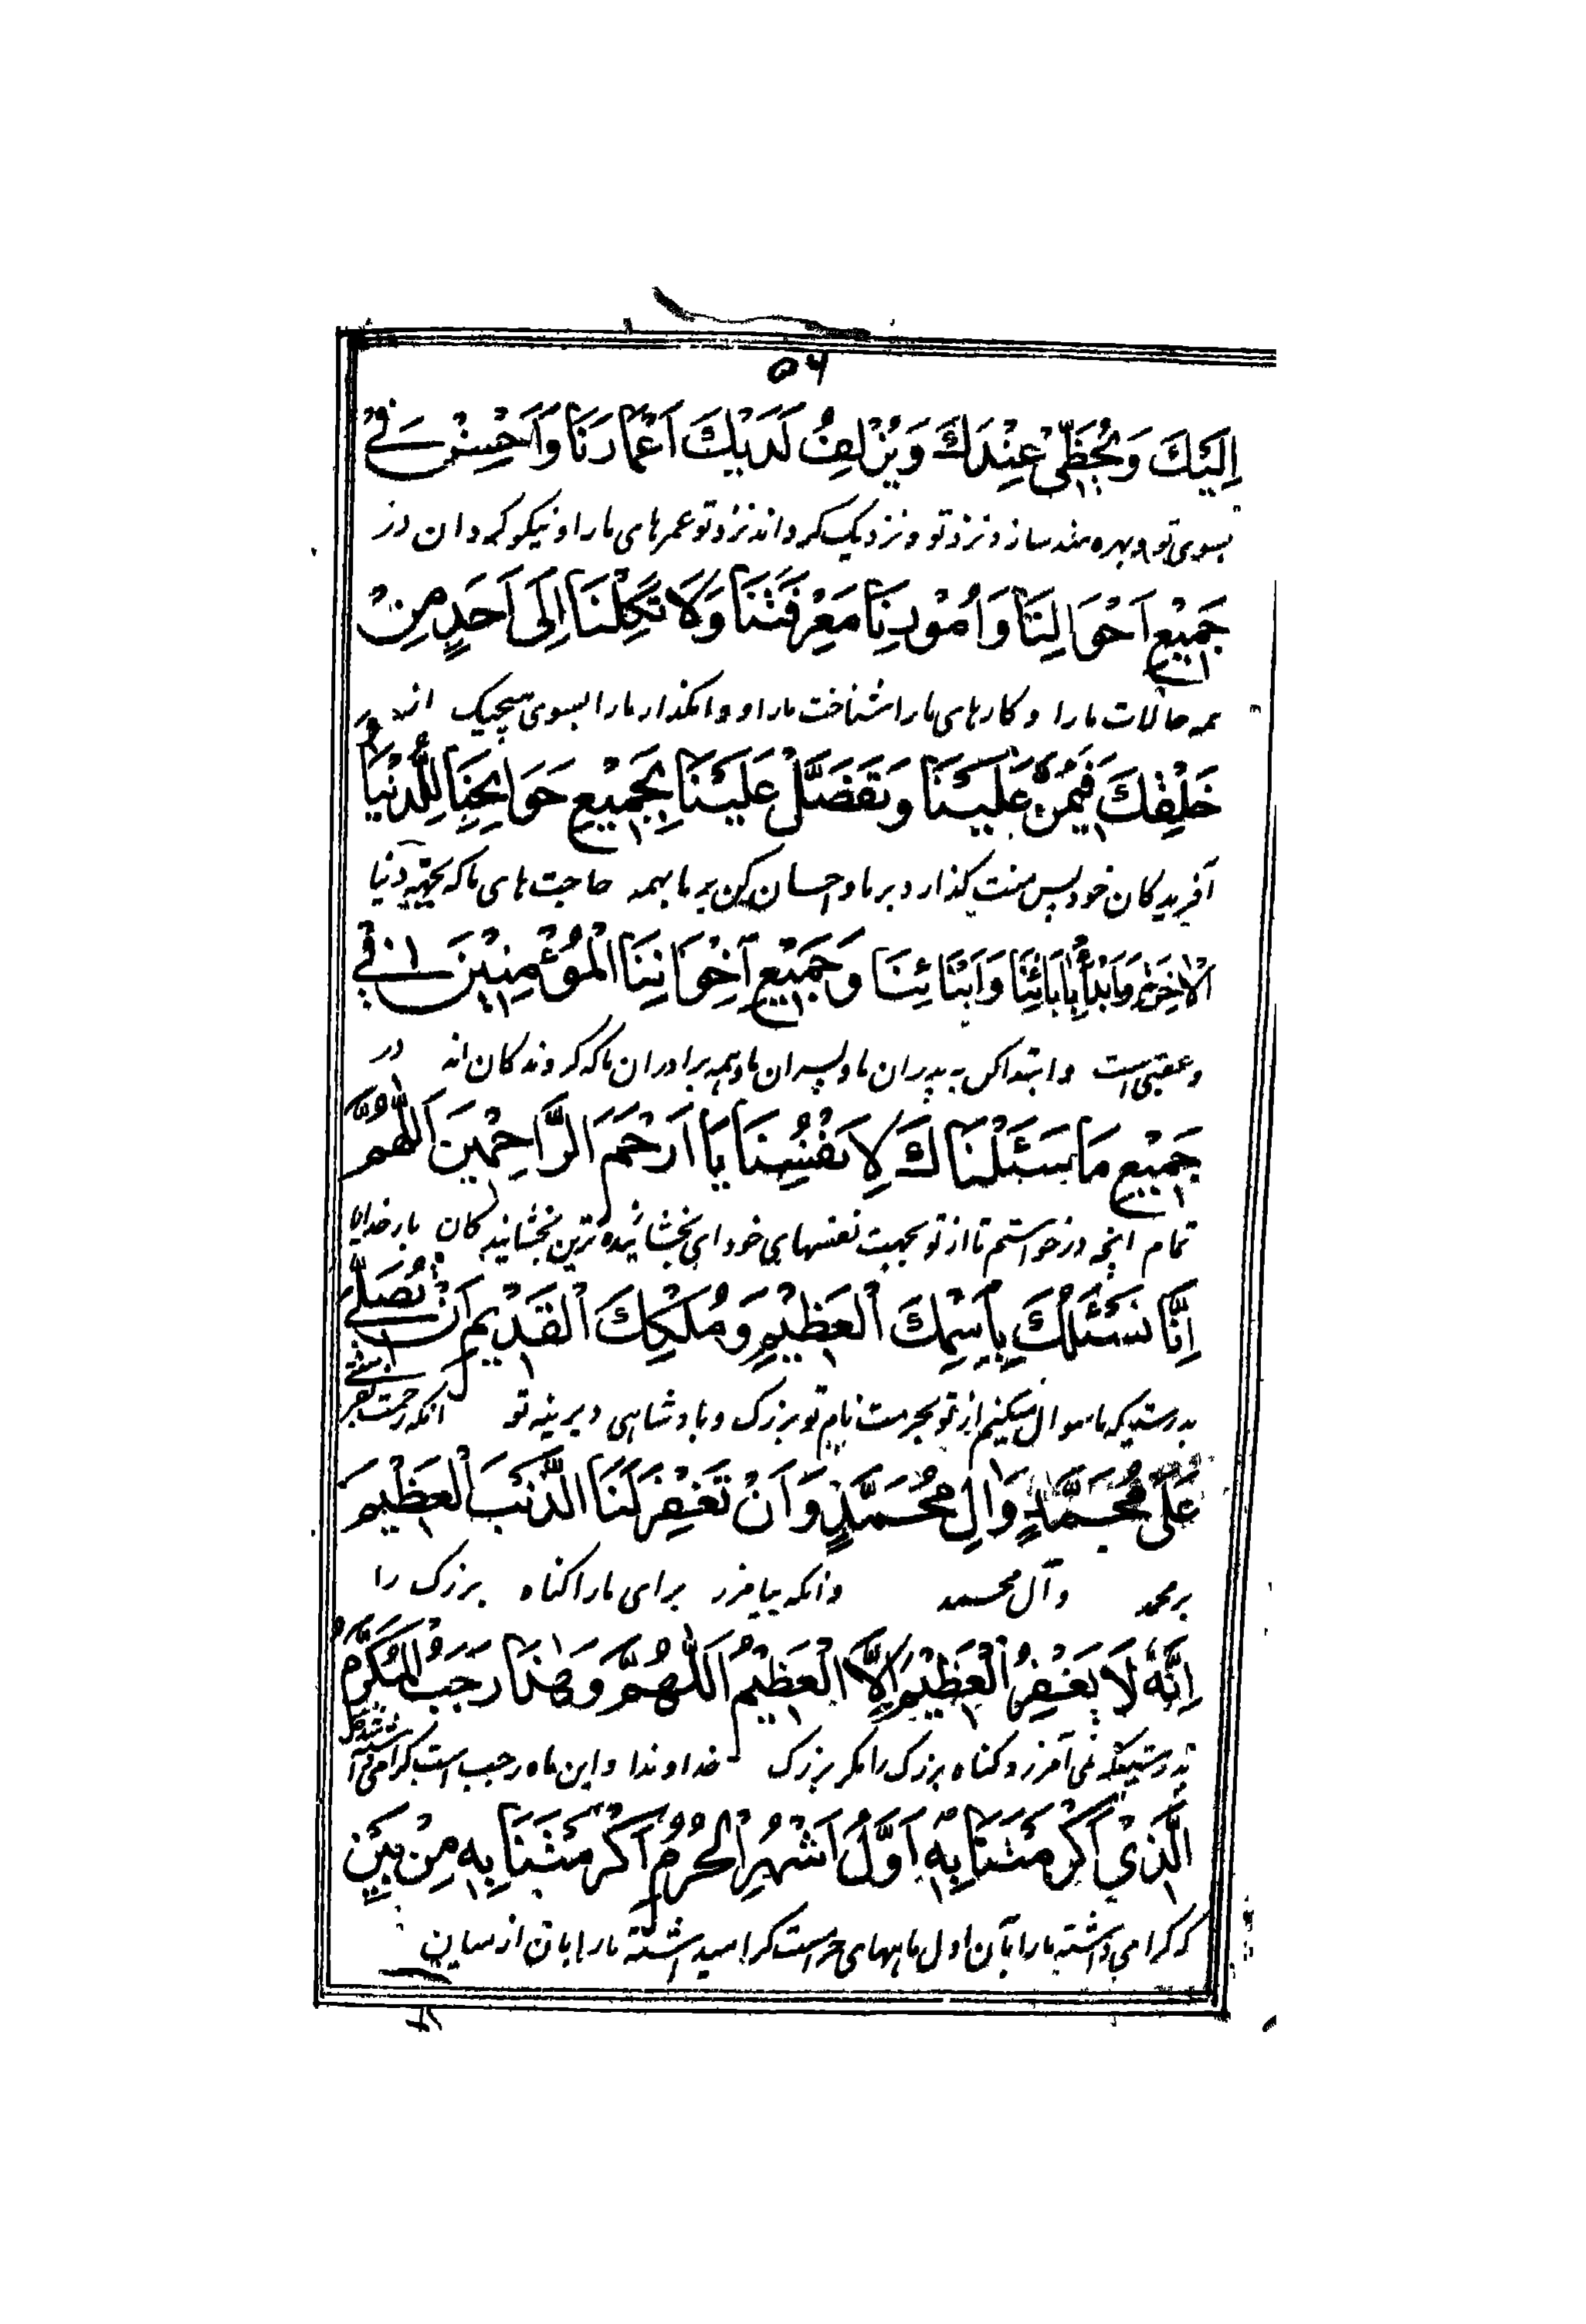 ٥٦
اِلَيْكَ وَيُحْظِيْ عِنْدَكَ وَيُزْلِفُ لَدَيْكَ اَعْمَارَنَا وَاَحْسِنْ فِيْ
بسوی تو و بهره مند سازد نزد تو و نزدیک گرداند نزد تو عمرهای ما را و نیکو گردان در
جَمِيْعِ اَحْوَالِنَا وَاُمُوْرِنَا مَعْرِفَتَنَا وَلَا تَكِلْنَا اِلَى اَحَدٍ مِنْ
همه حالات ما را و کارهای ما را شناخت ما را و وامگذار ما را بسوی هیچیک از
خَلْقِكَ فَيَمُنَّ عَلَيْنَا وَتَفَضَّلْ عَلَيْنَا بِجَمِيْعِ حَوَائِجِنَا لِلدُّنْيَا وَ
آفریدگان خود پس منت گذارد بر ما و احسان کن بر ما بهمه حاجت های ما که بجهته دنیا
الْاٰخِرَةِ وَابْدَأْ بِاٰبَائِنَا وَاَبْنَائِنَا وَجَمِيْعِ اَخِوَانِنَا الْمُؤْمِنِيْنَ فِيْ
و عقبی است و ابتدا کن به پدران ما و پسران ما و همه برادران ما که گروندگان اند در
جَمِيْعِ مَا سَئَلْنَاكَ لِاَنْفُسِنَا يَا اَرْحَمَ الرَّاحِمِيْنَ اَللّٰهُمَّ
تمام آنچه درخواستیم ما از تو بجهت نفسهای خود ای بخشاینده ترین بخشایندگان بار خدایا
اِنَّا نَسْئَلُكَ بِاسْمِكَ الْعَظِيْمِ وَمُلْكِكَ الْقَدِيْمِ اَنْ تُصَلِّيَ
بدرستیکه ما سوال میکنیم از تو بحرمت نام تو بزرگ و پادشاهی دیرینه تو آنکه رحمت
عَلٰى مُحَمَّدٍ وَاٰلِ مُحَمَّدٍ وَاَنْ تَغْفِرَ لَنَا الذَّنْبَ الْعَظِيْمَ
بر محمد و آل محمد و آنکه بیامرزد برای ما را گناه بزرگ را
اِنَّهٗ لَا يَغْفِرُ الْعَظِيْمَ اِلَّا الْعَظِيْمُ اَللّٰهُمَّ وَهٰذَا رَجَبُ الْمُكَرَّمُ
بدرستیکه نمی آمرزد گناه بزرگ را مگر بزرگ خداوندا و این ماه رجب است گرامی
الَّذِيْ اَكْرَمْتَنَا بِهٖ اَوَّلُ اَشْهُرِ الْحُرُمِ اَكْرَمْتَنَا بِهٖ مِنْ بَيْنِ
که گرامی داشته ما را بآن اول ماههای حرام است گرامیداشته ما را بآن از میان